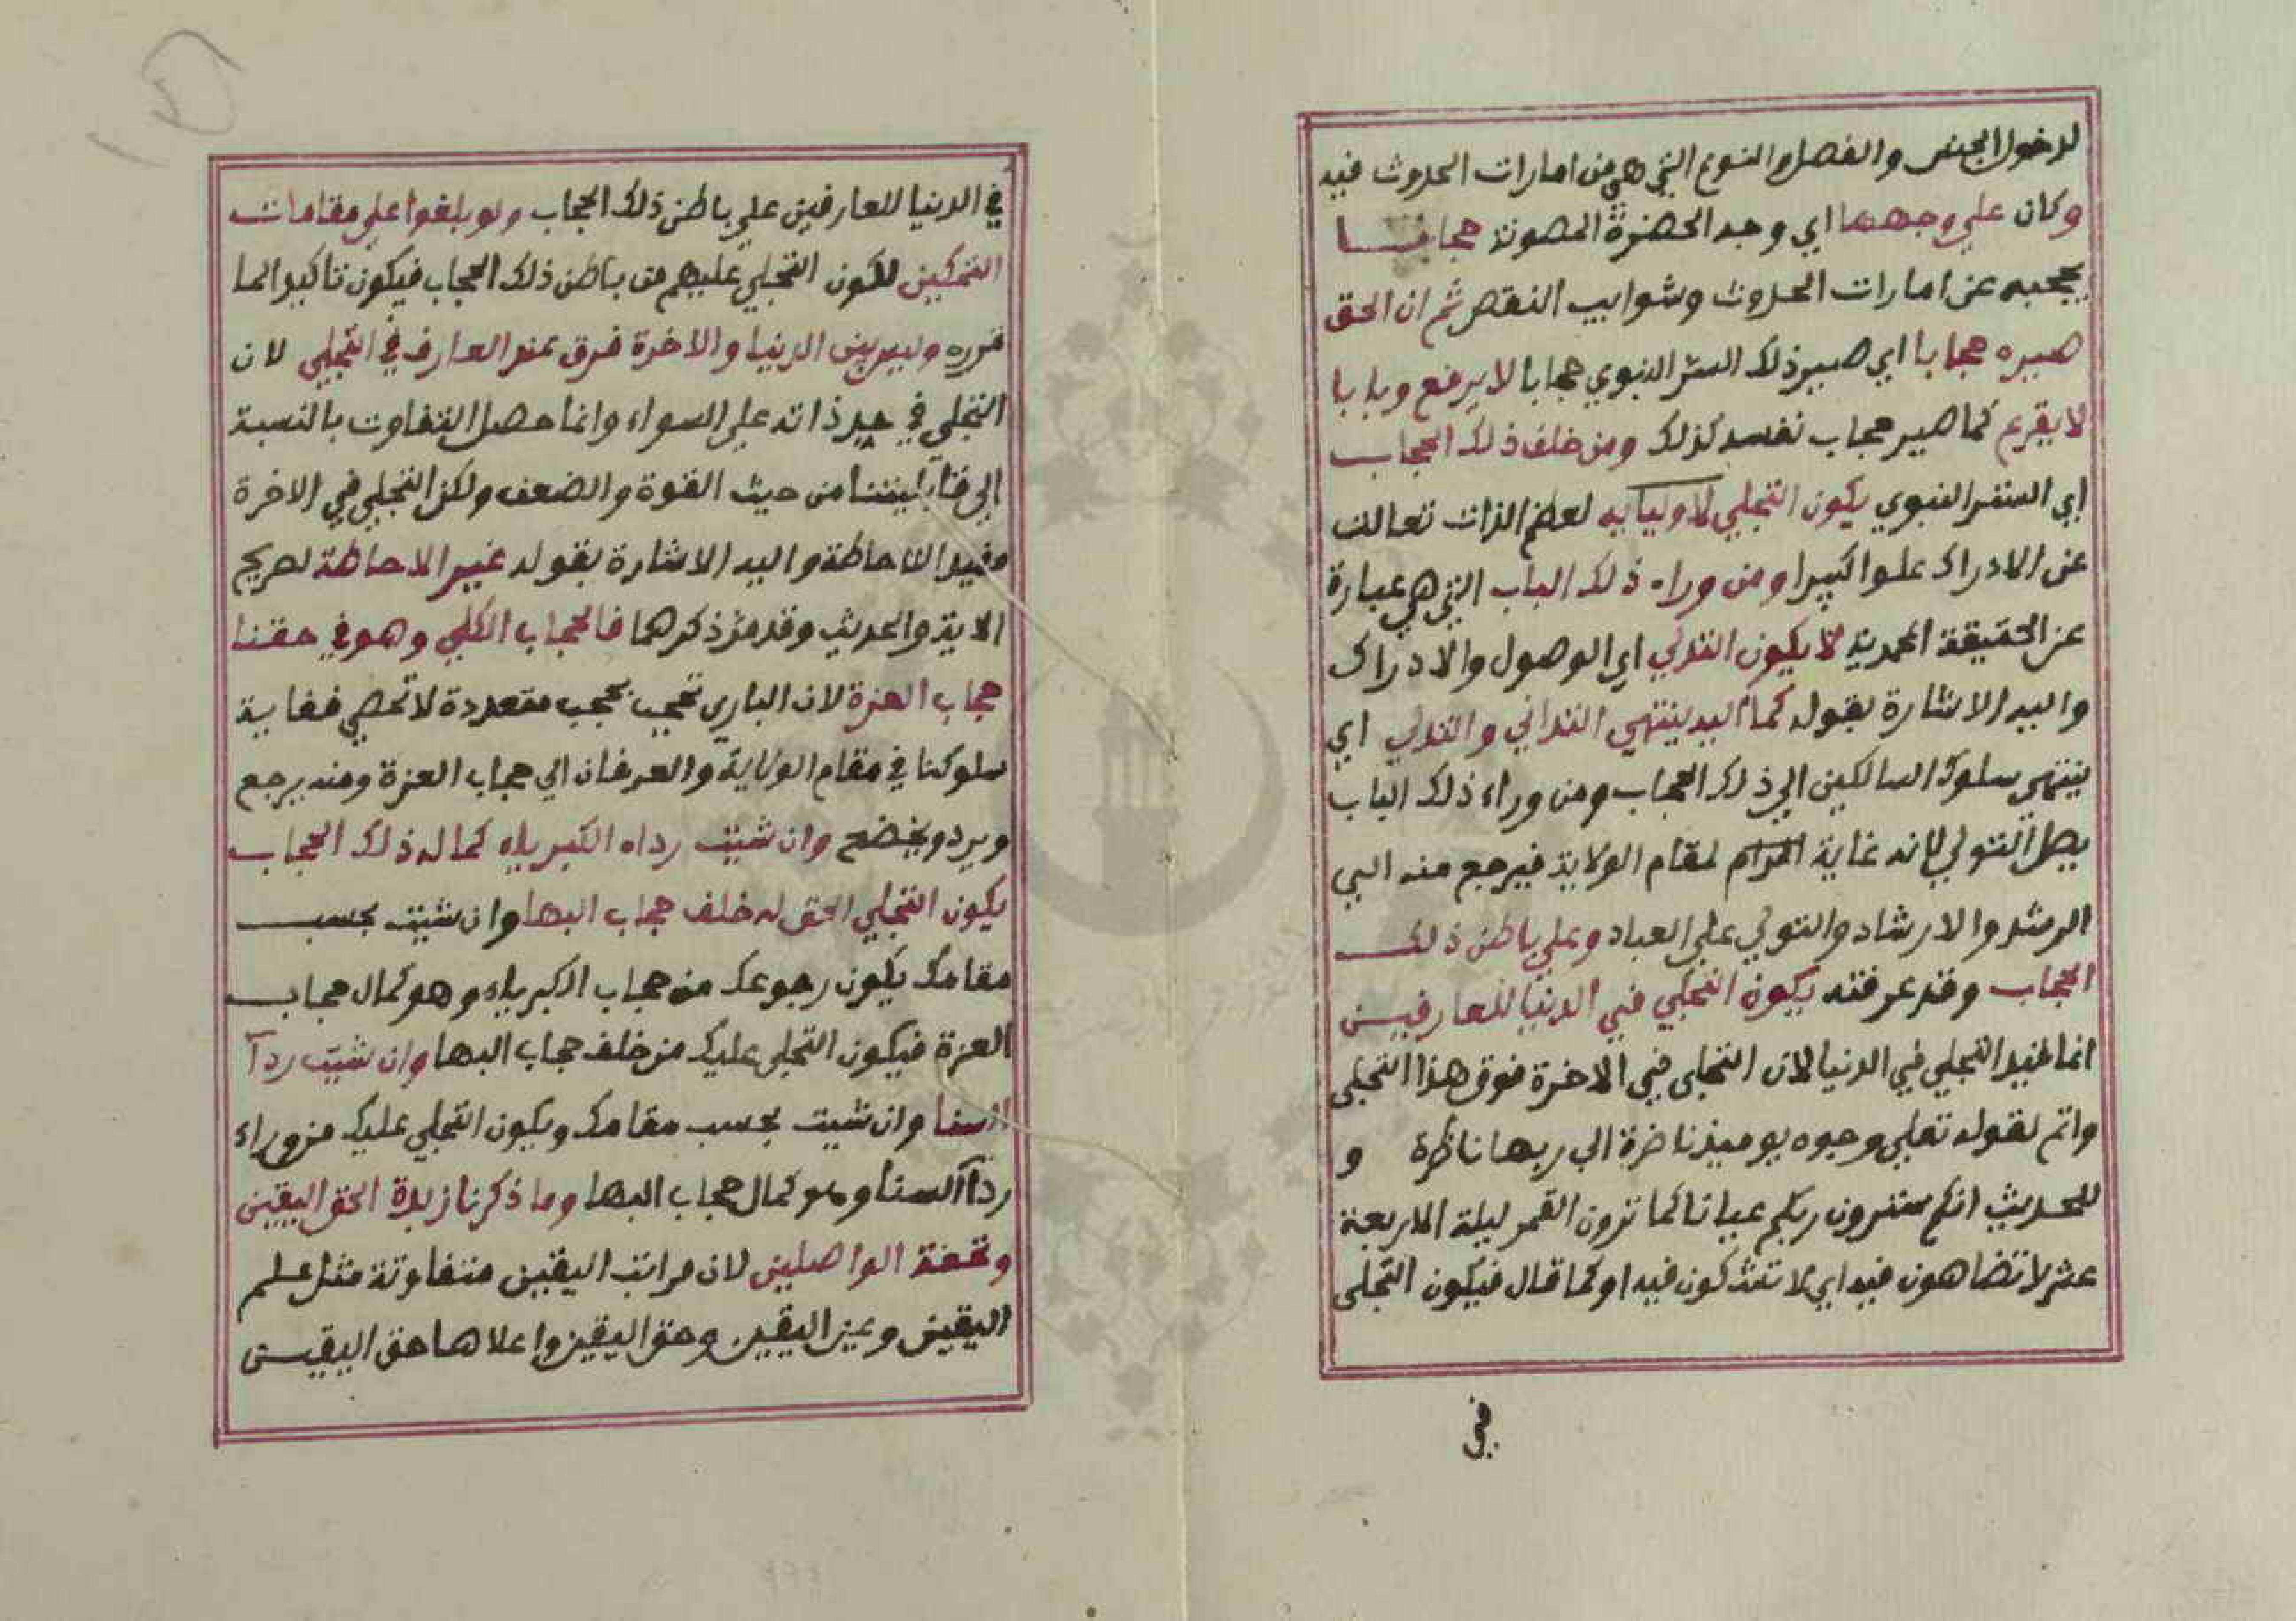 لدخول الجنس والفصل والنوع التي هي من امارات الحدوث فيه
وكان علي وجهها اي وجه الحضرة المصونة حجابا
يحجبه عن امارات الحدوث وشوايب النقص ثم ان الحق
صيره حجابا اي صير ذلك الستر النبوي حجابا لا يرفع وبابا
لا يقرع كما صير حجاب نفسه كذلك ومن خلف ذلك الحجاب
اي الستر النبوي يكون التجلي لاوليايه لعظم الذات تعالت
عن الادراك علوا كبيرا ومن وراء ذلك الباب التي هي عبارة
عن الحقيقة المحمدية لا يكون التدلي اي الوصول والادراك
واليه الاشارة بقوله كما اليه ينتهي التداني والتدلي اي
ينتهي سلوك السالكين الي ذلك الحجاب ومن وراء ذلك الباب
يصل التولي لانه غاية المرام لمقام الولاية فيرجع منه الي
الرشد والارشاد والتولي علي العباد وعلي باطن ذلك
الحجاب وقد عرفته يكون التجلي في الدنيا للعارفين
انما قيد التجلي في الدنيا لان التجلي في الاخرة فوق هذا التجلي
واتم لقوله تعلي وجوه يوميذ ناضرة الي ربها ناظرة و
للحديث انكم سترون ربكم عيانا كما ترون القمر ليلة الاربعة
عشر لا تضاهون فيه اي لا تشكون فيه او كما قال فيكون التجلي
في
في الدنيا للعارفين علي باطن ذلك الحجاب ولو بلغوا علي مقامات
التمكين لكون التجلي عليهم من باطن ذلك الحجاب فيكون تاكيدا لما
قرره وليس بين الدنيا والاخرة فرق عند العارف في التجلي لان
التجلي في حد ذاته علي السواء وانما حصل التفاوت بالنسبة
الي قابليتنا من حيث القوة والضعف ولكن التجلي في الاخرة
الاحاطة واليه الاشارة بقوله غير الاحاطة لصريح
الاية والحديث وقد مر ذكرهما فالحجاب الكلي وهو في حقنا
حجاب العزة لان الباري تحجب بحجب متعددة لا تحصي فغاية
سلوكنا في مقام الولاية والعرفان الي حجاب العزة ومنه يرجع
ويرد ويخضع وان شيت رداء الكبرياء كما له ذلك الحجاب
يكون التجلي الحق له خلف حجاب البها وان شيت بحسب
مقامك يكون رجوعك من حجاب الكبرياء وهو كمال حجاب
العزة فيكون التجلي عليك من خلف حجاب البها وان شيت ردآ
السنا وان شيت بحسب مقامك ويكون التجلي عليك من وراء
ردآ السنا وهو كمال حجاب البها وما ذكرنا زبدة الحق اليقين
وتحفة الواصلين لان مراتب اليقين متفاوتة مثل علم
اليقين وعين اليقين وحق اليقين واعلاها حق اليقين